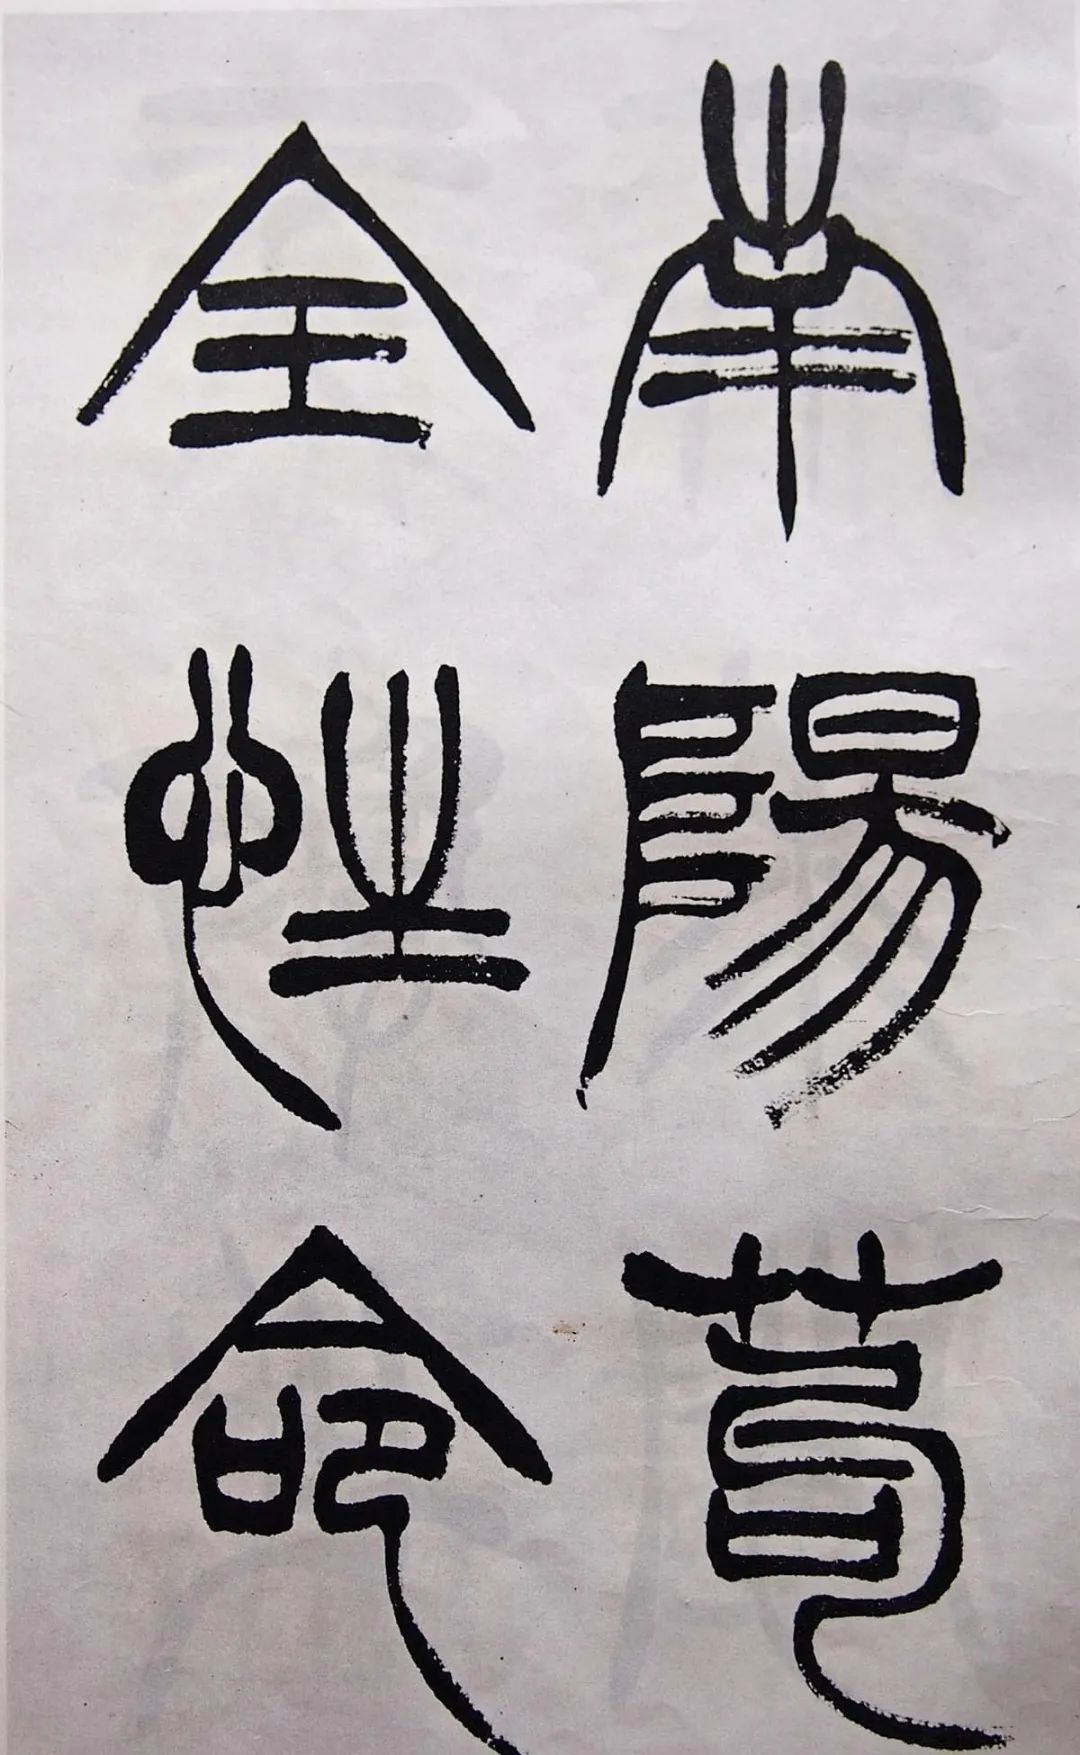 南陽苟
全性命